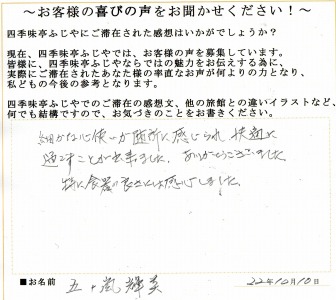 ～お客様の喜びの声をお聞かせください！～
四季味亭ふじやにご滞在された感想はいかがでしょうか？
現在、四季味亭ふじやでは、お客様の声を募集しています。
皆様に、四季味亭ふじやならではの魅力をお伝えする為に、
実際にご滞在されたあなた様の率直なお声が何よりの力となり、
私どもの今後の参考となります。
四季味亭ふじやでのご滞在の感想文、他の旅館との違いイラストなど、
何でも結構ですので、お気づきのことをお書きください。
細かな心使いが随所に感じられ、快適に
過ごすことが出来ました。ありがとうございました
特に食器の良さには感心しました。
■お名前 五十嵐輝美 22年10月10日